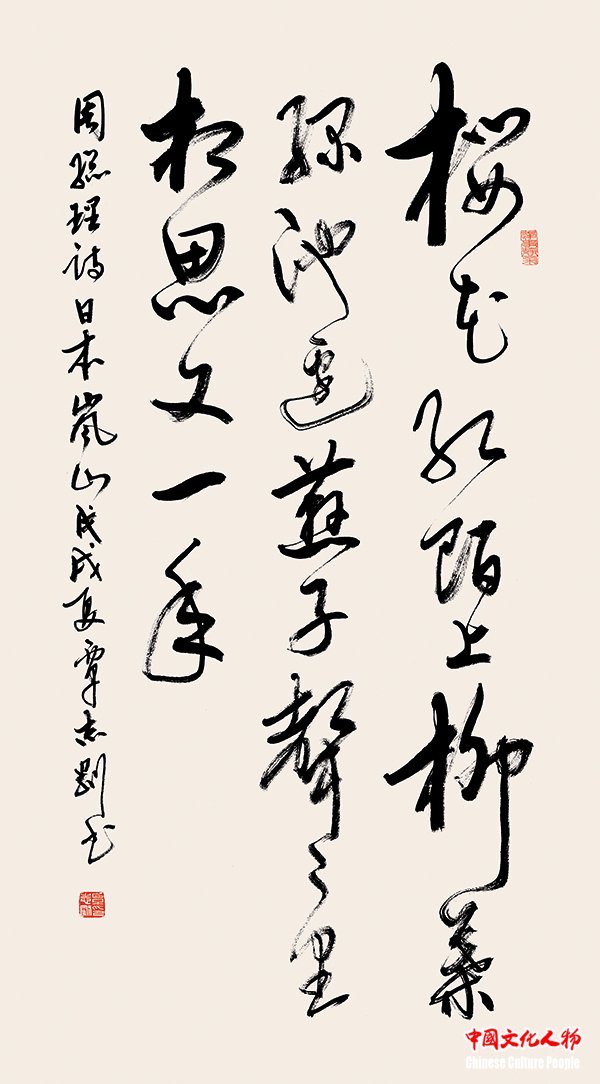 櫻花红陌上柳葉
綠池邊燕子聲々里
相思又一年
周總理詩日本嵐山戊戌夏覃志剛书
中國文化人物
Chinese Culture People